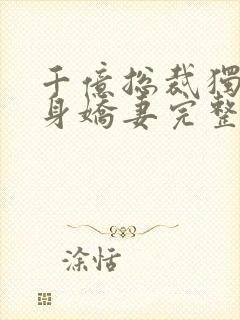 千億總裁獨
身嬌妻完整
涂恬